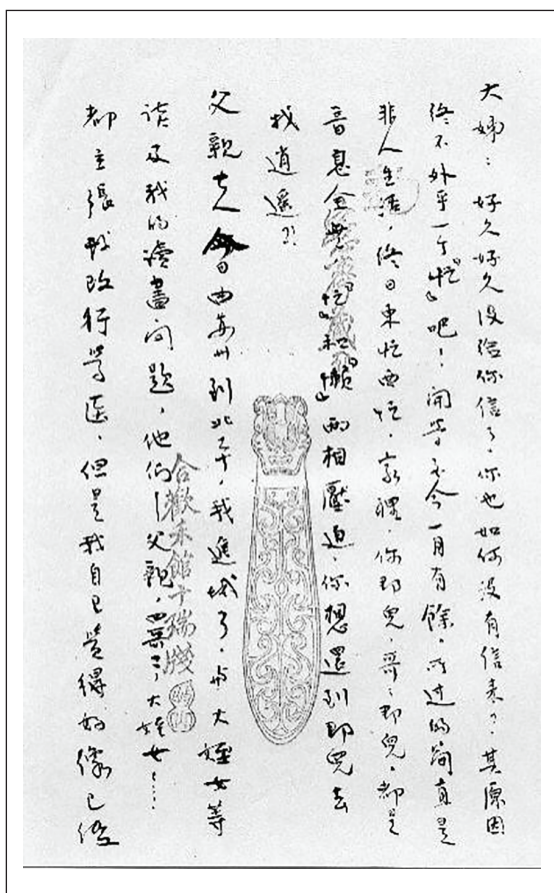 大姊：好久好久沒給你信了，你也如何沒有信来？其原因
終不外乎一个"忙"吧！開学至今一月有餘，所过的简直是
非人生活，終日東忙西忙，家裡，你那兒，哥哥那兒，都是
音息全無，忙和懶兩相壓迫，你想還到那兒去
找逍遥？！
父親七八日由蘇州到北平，我進城了，与大姪女等
談及我的讀書问题，他们——父親，四哥，大姪女……
都主張我改行学医，但是我自己覺得好像已經
合歡禾館丁瑞牋